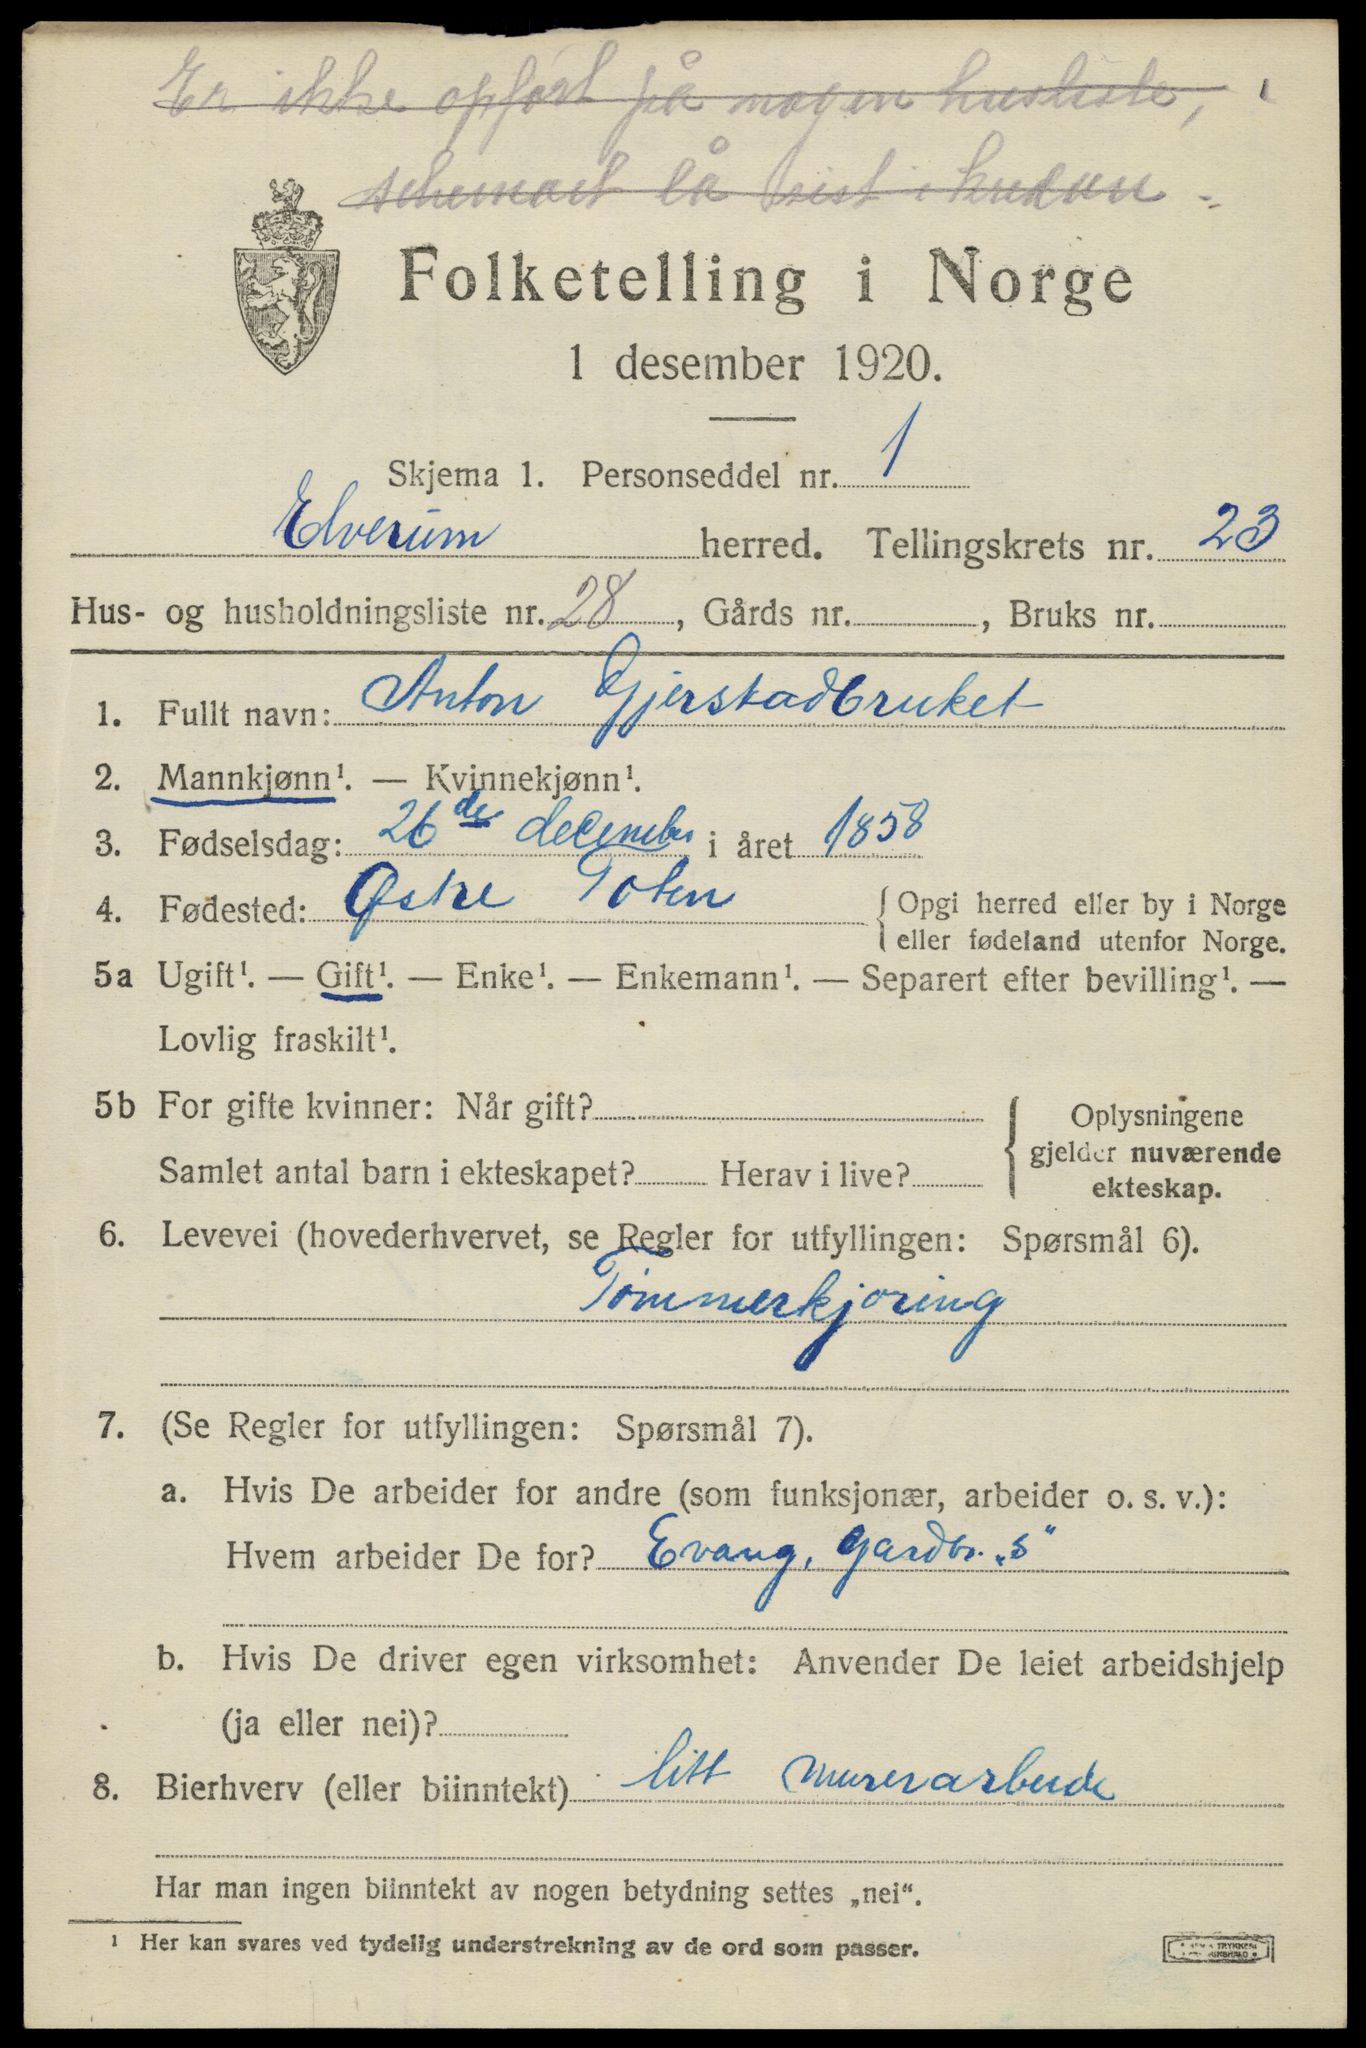 Er ikke opført på nogen husliste,
schemaet lå sist i
Folketelling i Norge
1 desember 1920.
Skjema 1. Personseddel nr. 1
Elverum herred. Tellingskrets nr. 23
Hus- og husholdningsliste nr. 28, Gårds nr. , Bruks nr.
1. Fullt navn: Anton Gjerstadbruket
2. Mannkjønn¹. — Kvinnekjønn¹.
3. Fødselsdag: 26de december i året 1858
4. Fødested: Østre Toten { Opgi herred eller by i Norge
eller fødeland utenfor Norge.
5a Ugift¹. — Gift¹. — Enke¹. — Enkemann¹. — Separert efter bevilling¹. —
Lovlig fraskilt¹.
5b For gifte kvinner: Når gift? { Oplysningene
gjelder nuværende
Samlet antal barn i ekteskapet? Herav i live? ekteskap.
6. Levevei (hovederhvervet, se Regler for utfyllingen: Spørsmål 6).
Tømmerkjoring
7. (Se Regler for utfyllingen: Spørsmål 7).
a. Hvis De arbeider for andre (som funksjonær, arbeider o. s. v.):
Hvem arbeider De for? Evang, Gardbr. „S"
b. Hvis De driver egen virksomhet: Anvender De leiet arbeidshjelp
(ja eller nei)?
8. Bierhverv (eller biinntekt) litt murerarbeide
Har man ingen biinntekt av nogen betydning settes „nei“.
¹ Her kan svares ved tydelig understrekning av de ord som passer.